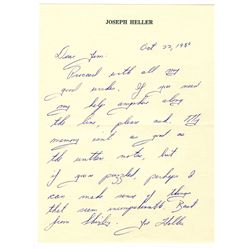 JOSEPH HELLER
Oct 22, 198
Dear Jim:
Proceed with all my
good wishes. If you need
my help anywhere along
the line, please ask. My
memory isn't as good as
the written notes, but
if you're puzzled, perhaps I
can make sense of things
that seem incomprehensible. Best
from Shirley. Joe Heller